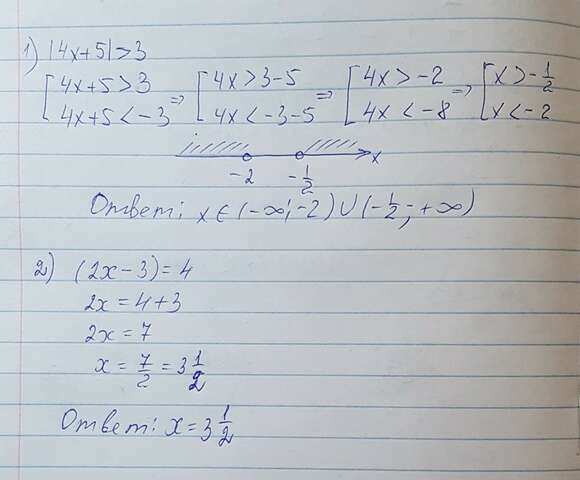 1) |4x+5|>3
[4x+5>3 => [4x>3-5 => [4x>-2 => [x>-1/2
[4x+5<-3 [4x<-3-5 [4x<-8 [x<-2
x
-2 -1/2
Ответ: x∈(-∞;-2)∪(-1/2;+∞)
2) (2x-3)=4
2x=4+3
2x=7
x=7/2=3 1/2
Ответ: x=3 1/2